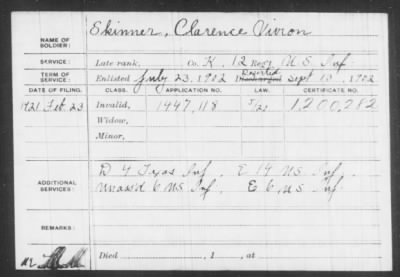 NAME OF SOLDIER: Skinner, Clarence Vivion
SERVICE: Late rank, Co. K, 12 Reg't U.S. Inf.
TERM OF SERVICE: Enlisted July 23, 1902 Discharged Deserted Sept 13, 1902
DATE OF FILING. CLASS. APPLICATION NO. LAW. CERTIFICATE NO.
1921 Feb. 23 Invalid, 1447,118 1,200,282
Widow,
Minor,
ADDITIONAL SERVICES: D 4 Texas Inf. E 19 U.S. Inf.
Unass'd 6 U.S. Inf. E 6 U.S. Inf.
REMARKS:
Died , 1 , at